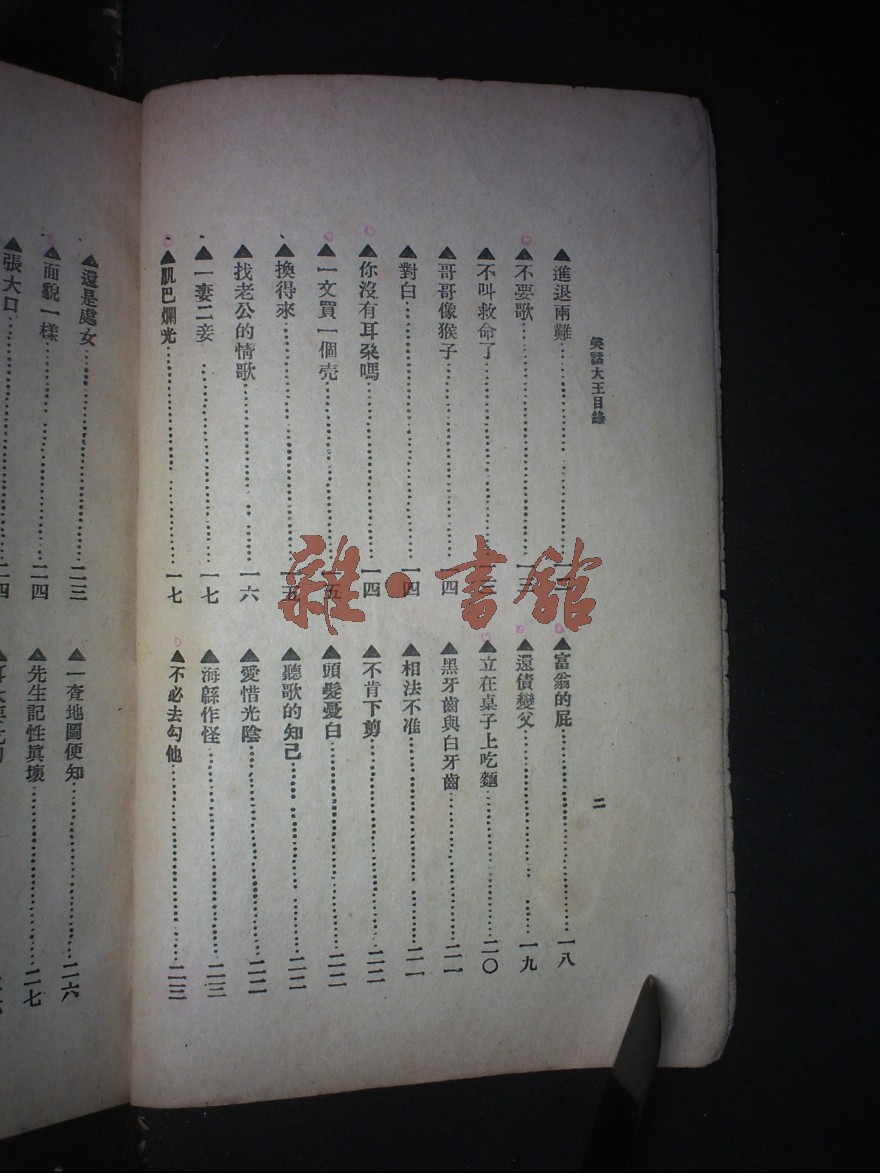 笑話大王目錄
二
▲進退兩難
▲不要歌 一三
▲不叫救命了 一三
▲哥哥像猴子 一四
▲對白 一四
▲你沒有耳朶嗎 一四
▲一文買一個壳 一五
▲換得來 一五
▲找老公的情歌 一六
▲一妻二妾 一七
▲肌巴爛光 一七
▲富翁的屁 一八
▲還債變父 一九
▲立在桌子上吃麵 二〇
▲黑牙齒與白牙齒 二一
▲相法不准 二一
▲不肯下剪 二二
▲頭髮憂白 二二
▲聽歌的知己 二二
▲愛惜光陰 二二
▲海繇作怪 二三
▲不必去勾他 二三
▲還是處女 二三
▲面貌一樣 二四
▲張大口 二四
▲一查地圖便知 二六
▲先生記性眞壞 二七
雜·書館